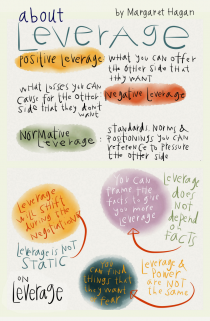 about
by Margaret Hagan
Leverage
Positive Leverage
what you can offer
the other side that
they want
what losses you can
cause for the other
side that they don't
want
Negative Leverage
Normative
Leverage
standards, norms &
positionings you can
reference to pressure
the other side
Leverage
will shift
during the
negotiation
Leverage is NOT
STATIC
You can
frame the
facts to give
you more
leverage
Leverage
does not
depend
on
FACTS
ON
Leverage
You can find
things that
they want
or fear
Leverage &
Power
are not
the same